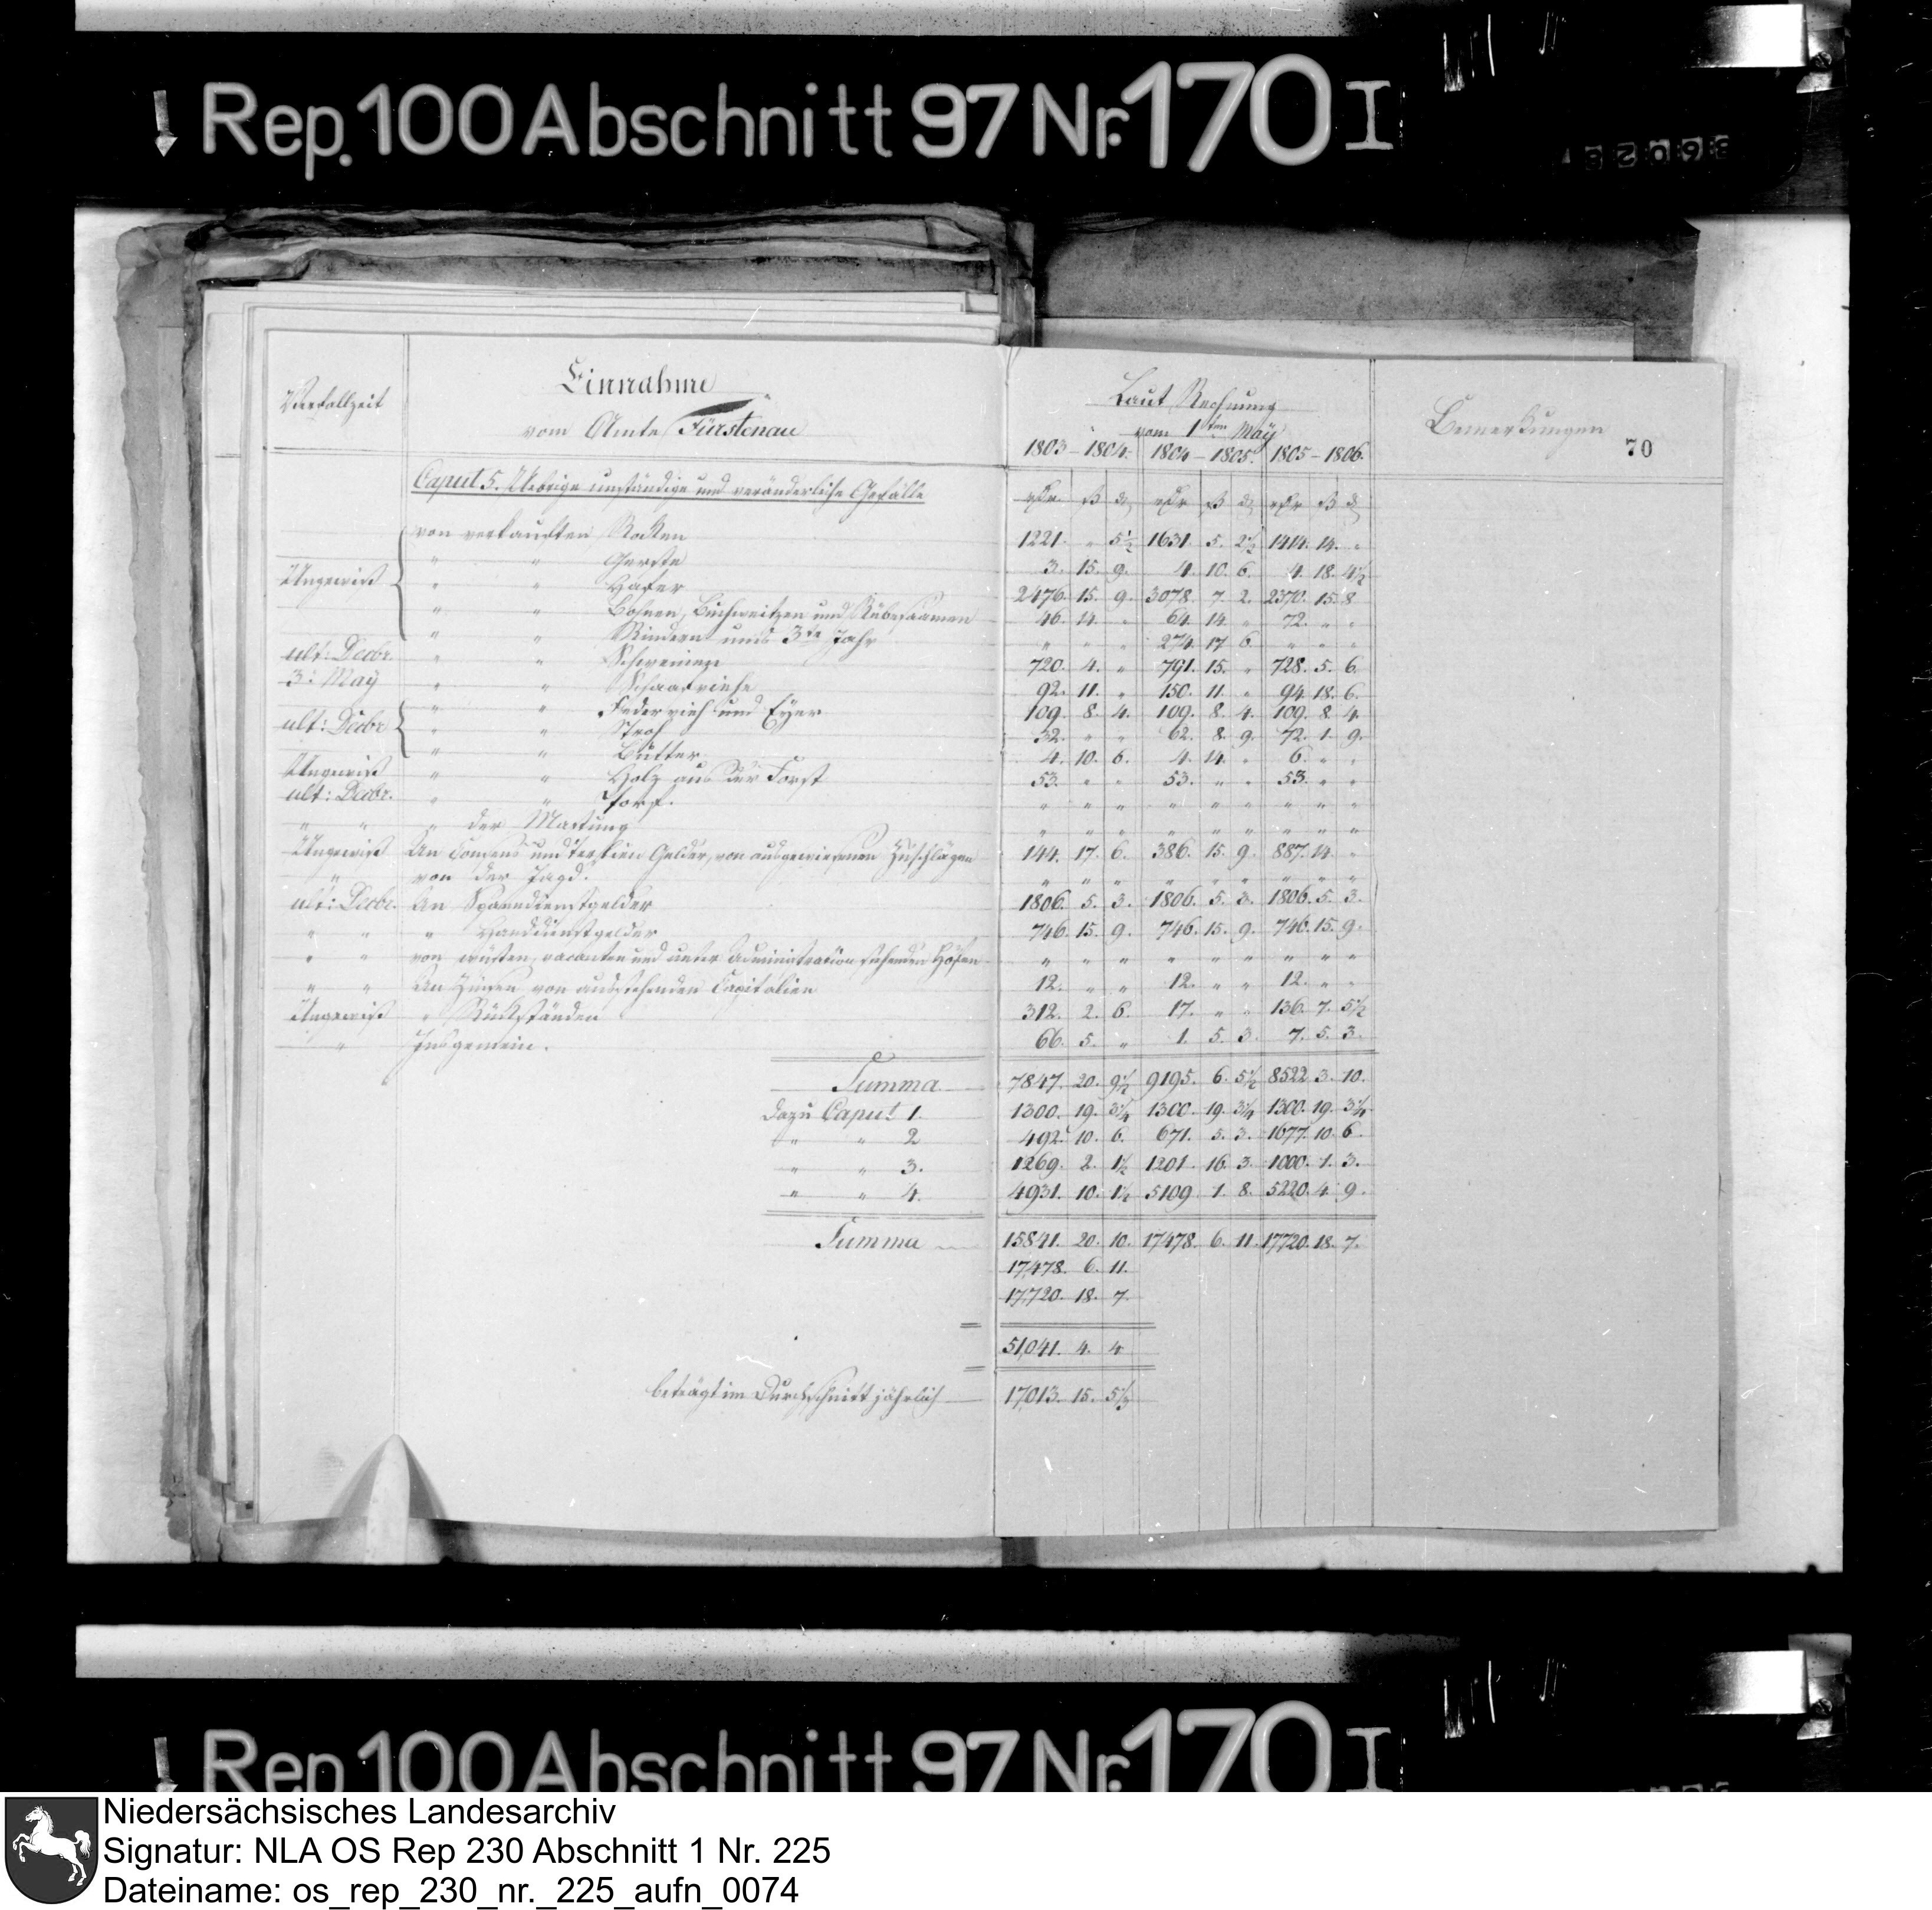 Rep. 100 Abschnitt 97 Nr. 170 I
Verfallzeit
Einnahme
vom Amte Fürstenau
Laut Rechnung
vom 1ten May
1803 – 1804. 1804 – 1805. 1805 – 1806.
Bemerkungen
70
Caput 5. Uebrige unständige und veränderliche Gefälle
von verkauften Rocken 1221. " 5½ 1631. 5. 2½ 1414. 14. "
" " Gerste 3. 15. 9. 4. 10. 6. 4. 18. 4½
Ungewiß " " Hafer 2476. 15. 9. 3078. 7. 2. 2370. 15. 8
" " Bohnen, Buchweitzen und Rübesaamen 46. 14. " 64. 14. " 72. " "
" " Rindern ums 3te Jahr " " " 274. 17. 6. " " "
ult: Decbr. " " Schweinen 720. 4. " 791. 15. " 728. 5. 6.
3: May " " Schaafviehe 92. 11. " 150. 11. " 94. 18. 6.
" " Federvieh und Eyer 109. 8. 4. 109. 8. 4. 109. 8. 4.
ult: Decbr " " Stroh 32. " " 62. 8. 9. 72. 1. 9.
" " Butter 4. 10. 6. 4. 14. " 6. " "
Ungewiß " " Holz aus der Forst 53. " " 53. " " 53. " "
ult: Decbr. " " Torf. " " " " " " " " "
" " " der Mastung " " " " " " " " "
Ungewiß An Consens und Gelder, von ausgewiesenen Zuschlägen 144. 17. 6. 386. 15. 9. 887. 14. "
" von der Jagd. " " " " " " " " "
ult: Decbr. An Spanndienstgelder 1806. 5. 3. 1806. 5. 3. 1806. 5. 3.
" " " Handdienstgelder 746. 15. 9. 746. 15. 9. 746. 15. 9.
" " von wüsten, vacanten und unter Administration stehenden Höfen " " " " " " " " "
" " An Zinsen von ausstehenden Capitalien 12. " " 12. " " 12. " "
Ungewiß " Rückständen 312. 2. 6. 17. " " 136. 7. 5½
" Insgemein. 66. 5. " 1. 5. 3. 7. 5. 3.
Summa 7847. 20. 9½ 9195. 6. 5½ 8522 3. 10.
dazu Caput 1. 1300. 19. 3¼ 1300. 19. 3¼ 1300. 19. 3¼
" " 2 492. 10. 6. 671. 5. 3. 1677. 10. 6.
" " 3. 1269. 2. 1½ 1201. 16. 3. 1000. 1. 3.
" " 4. 4931. 10. 1½ 5109. 1. 8. 5220. 4. 9.
Summa 15841. 20. 10. 17478. 6. 11. 17720. 18. 7.
17,478. 6. 11.
17,720. 18. 7.
51,041. 4. 4
beträgt im Durchschnitt jährlich 17,013. 15. 5⅓
Rep. 100 Abschnitt 97 Nr. 170 I
Niedersächsisches Landesarchiv
Signatur: NLA OS Rep 230 Abschnitt 1 Nr. 225
Dateiname: os_rep_230_nr._225_aufn_0074